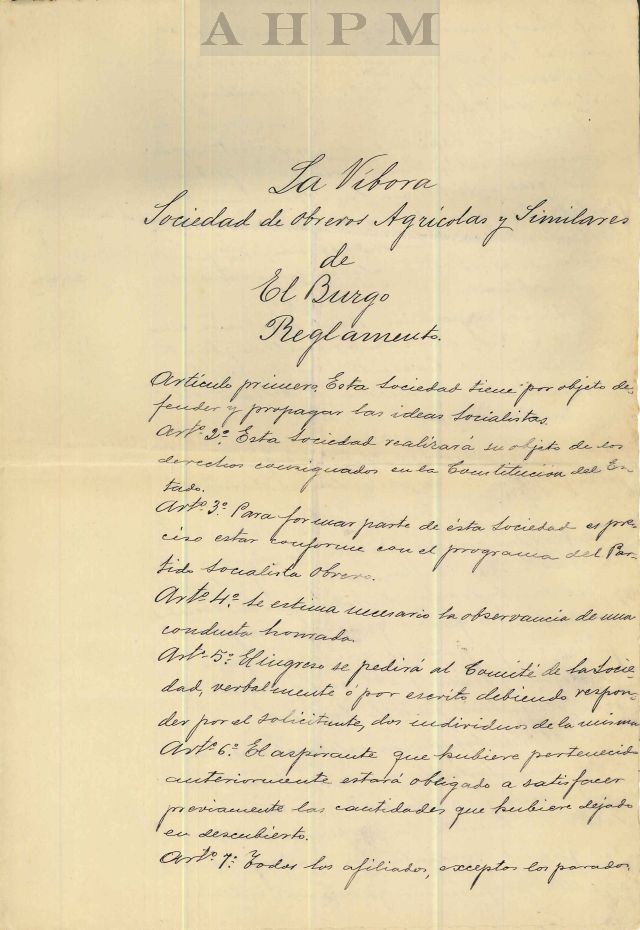 AHPM
La Víbora
Sociedad de obreros Agrícolas y Similares
de
El Burgo
Reglamento.
Artículo primero. Esta Sociedad tiene por objeto de-
fender y propagar las ideas Socialistas.
Artº 2º Esta Sociedad realizará su objeto de los
derechos consignados en la Constitución del Es-
tado.
Artº 3º Para formar parte de ésta Sociedad es pre-
ciso estar conforme con el programa del Par-
tido Socialista Obrero.
Artº 4º Se estima necesario la observancia de una
conducta honrada.
Artº 5º El ingreso se pedirá al Comité de la Socie-
dad, verbalmente ó por escrito debiendo respon-
der por el solicitante, dos individuos de la misma
Artº 6º El aspirante que hubiere pertenecido
anteriormente estará obligado a satisfacer
previamente las cantidades que hubiere dejado
en descubierto.
Artº 7º Todos los afiliados, exceptos los parados,